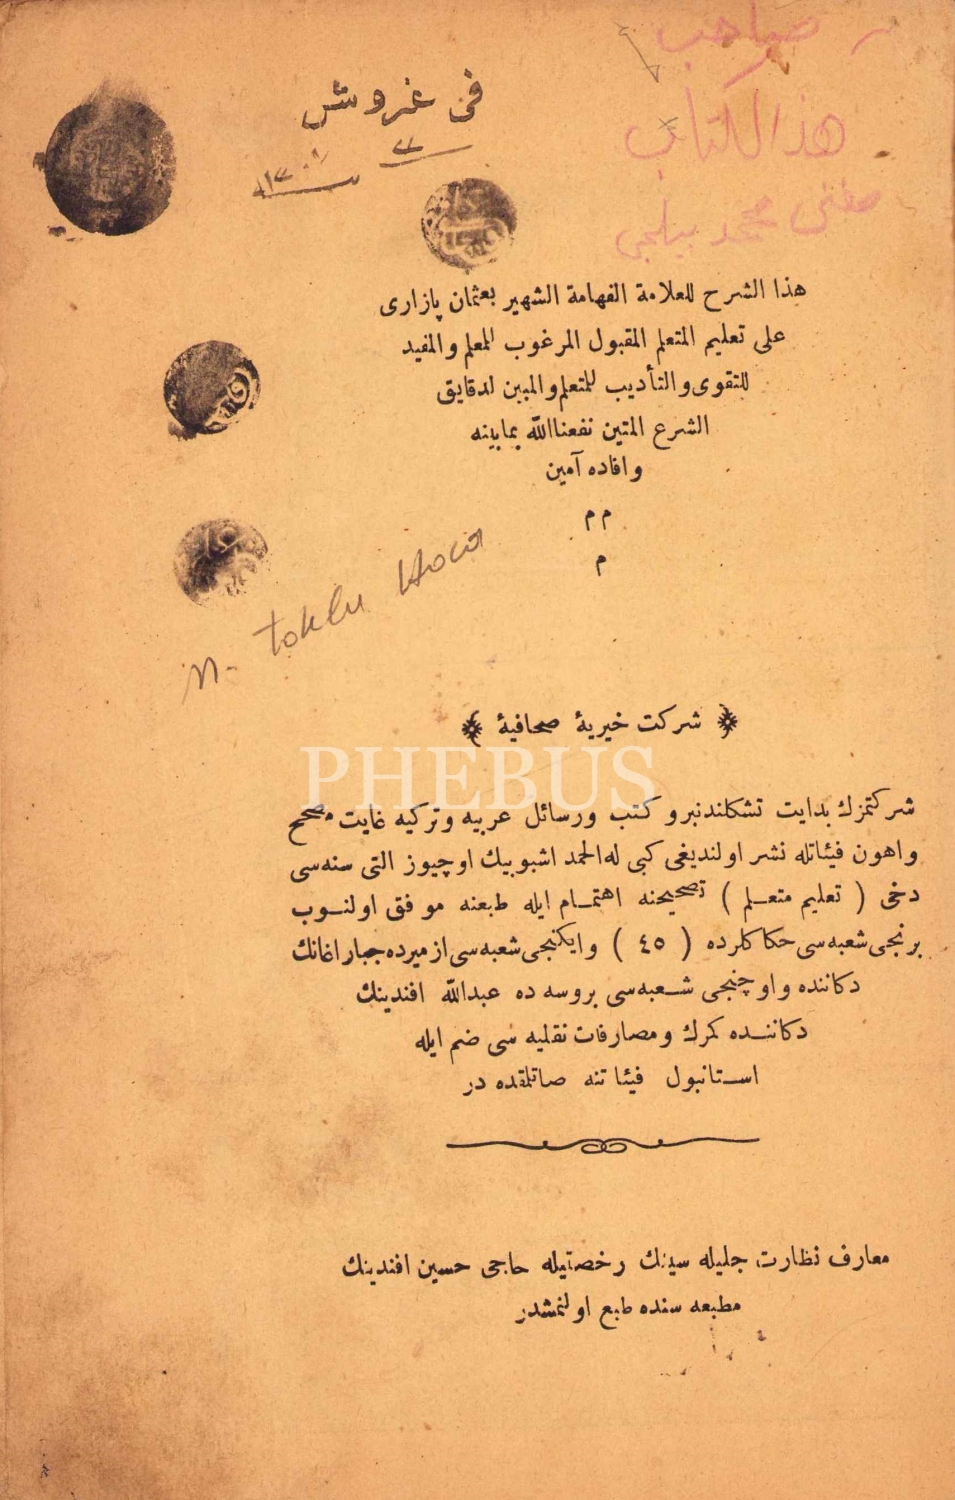 صاحب
هذا الكتاب
مفتى محمد بيلجى
فى غروش
هذا الشرح للعلامة الفهامة الشهير بعثمان پازارى
على تعليم المتعلم المقبول المرغوب للمعلم والمفيد
للتقوى والتأديب للمتعلم والمبين لدقايق
الشرع المتين نفعنا الله بمابينه
وافاده آمين
م م
م
M. Toklu Hoca
﴿ شركت خيريۀ صحافيۀ ﴾
PHEBUS
شركتمزك بدايت تشكلندنبرو كتب ورسائل عربيه وتركيه غايت مصحح
واهون فيئاتله نشر اولنديغى كبى له الحمد اشبو بيك اوچيوز التى سنه سى
دخى ( تعليم متعلم ) تصحيحنه اهتمام ايله طبعنه موفق اولنوب
برنجى شعبه سى حكاكلرده ( ٤٥ ) وايكنجى شعبه سى ازميرده جبار اغانك
دكاننده واوچنجى شعبه سى بروسه ده عبدالله افندينك
دكاننده كمرك ومصارفات نقليه سى ضم ايله
استانبول فيئاتنه صاتلقده در
معارف نظارت جليله سينك رخصتيله حاجى حسين افندينك
مطبعه سنده طبع اولنمشدر